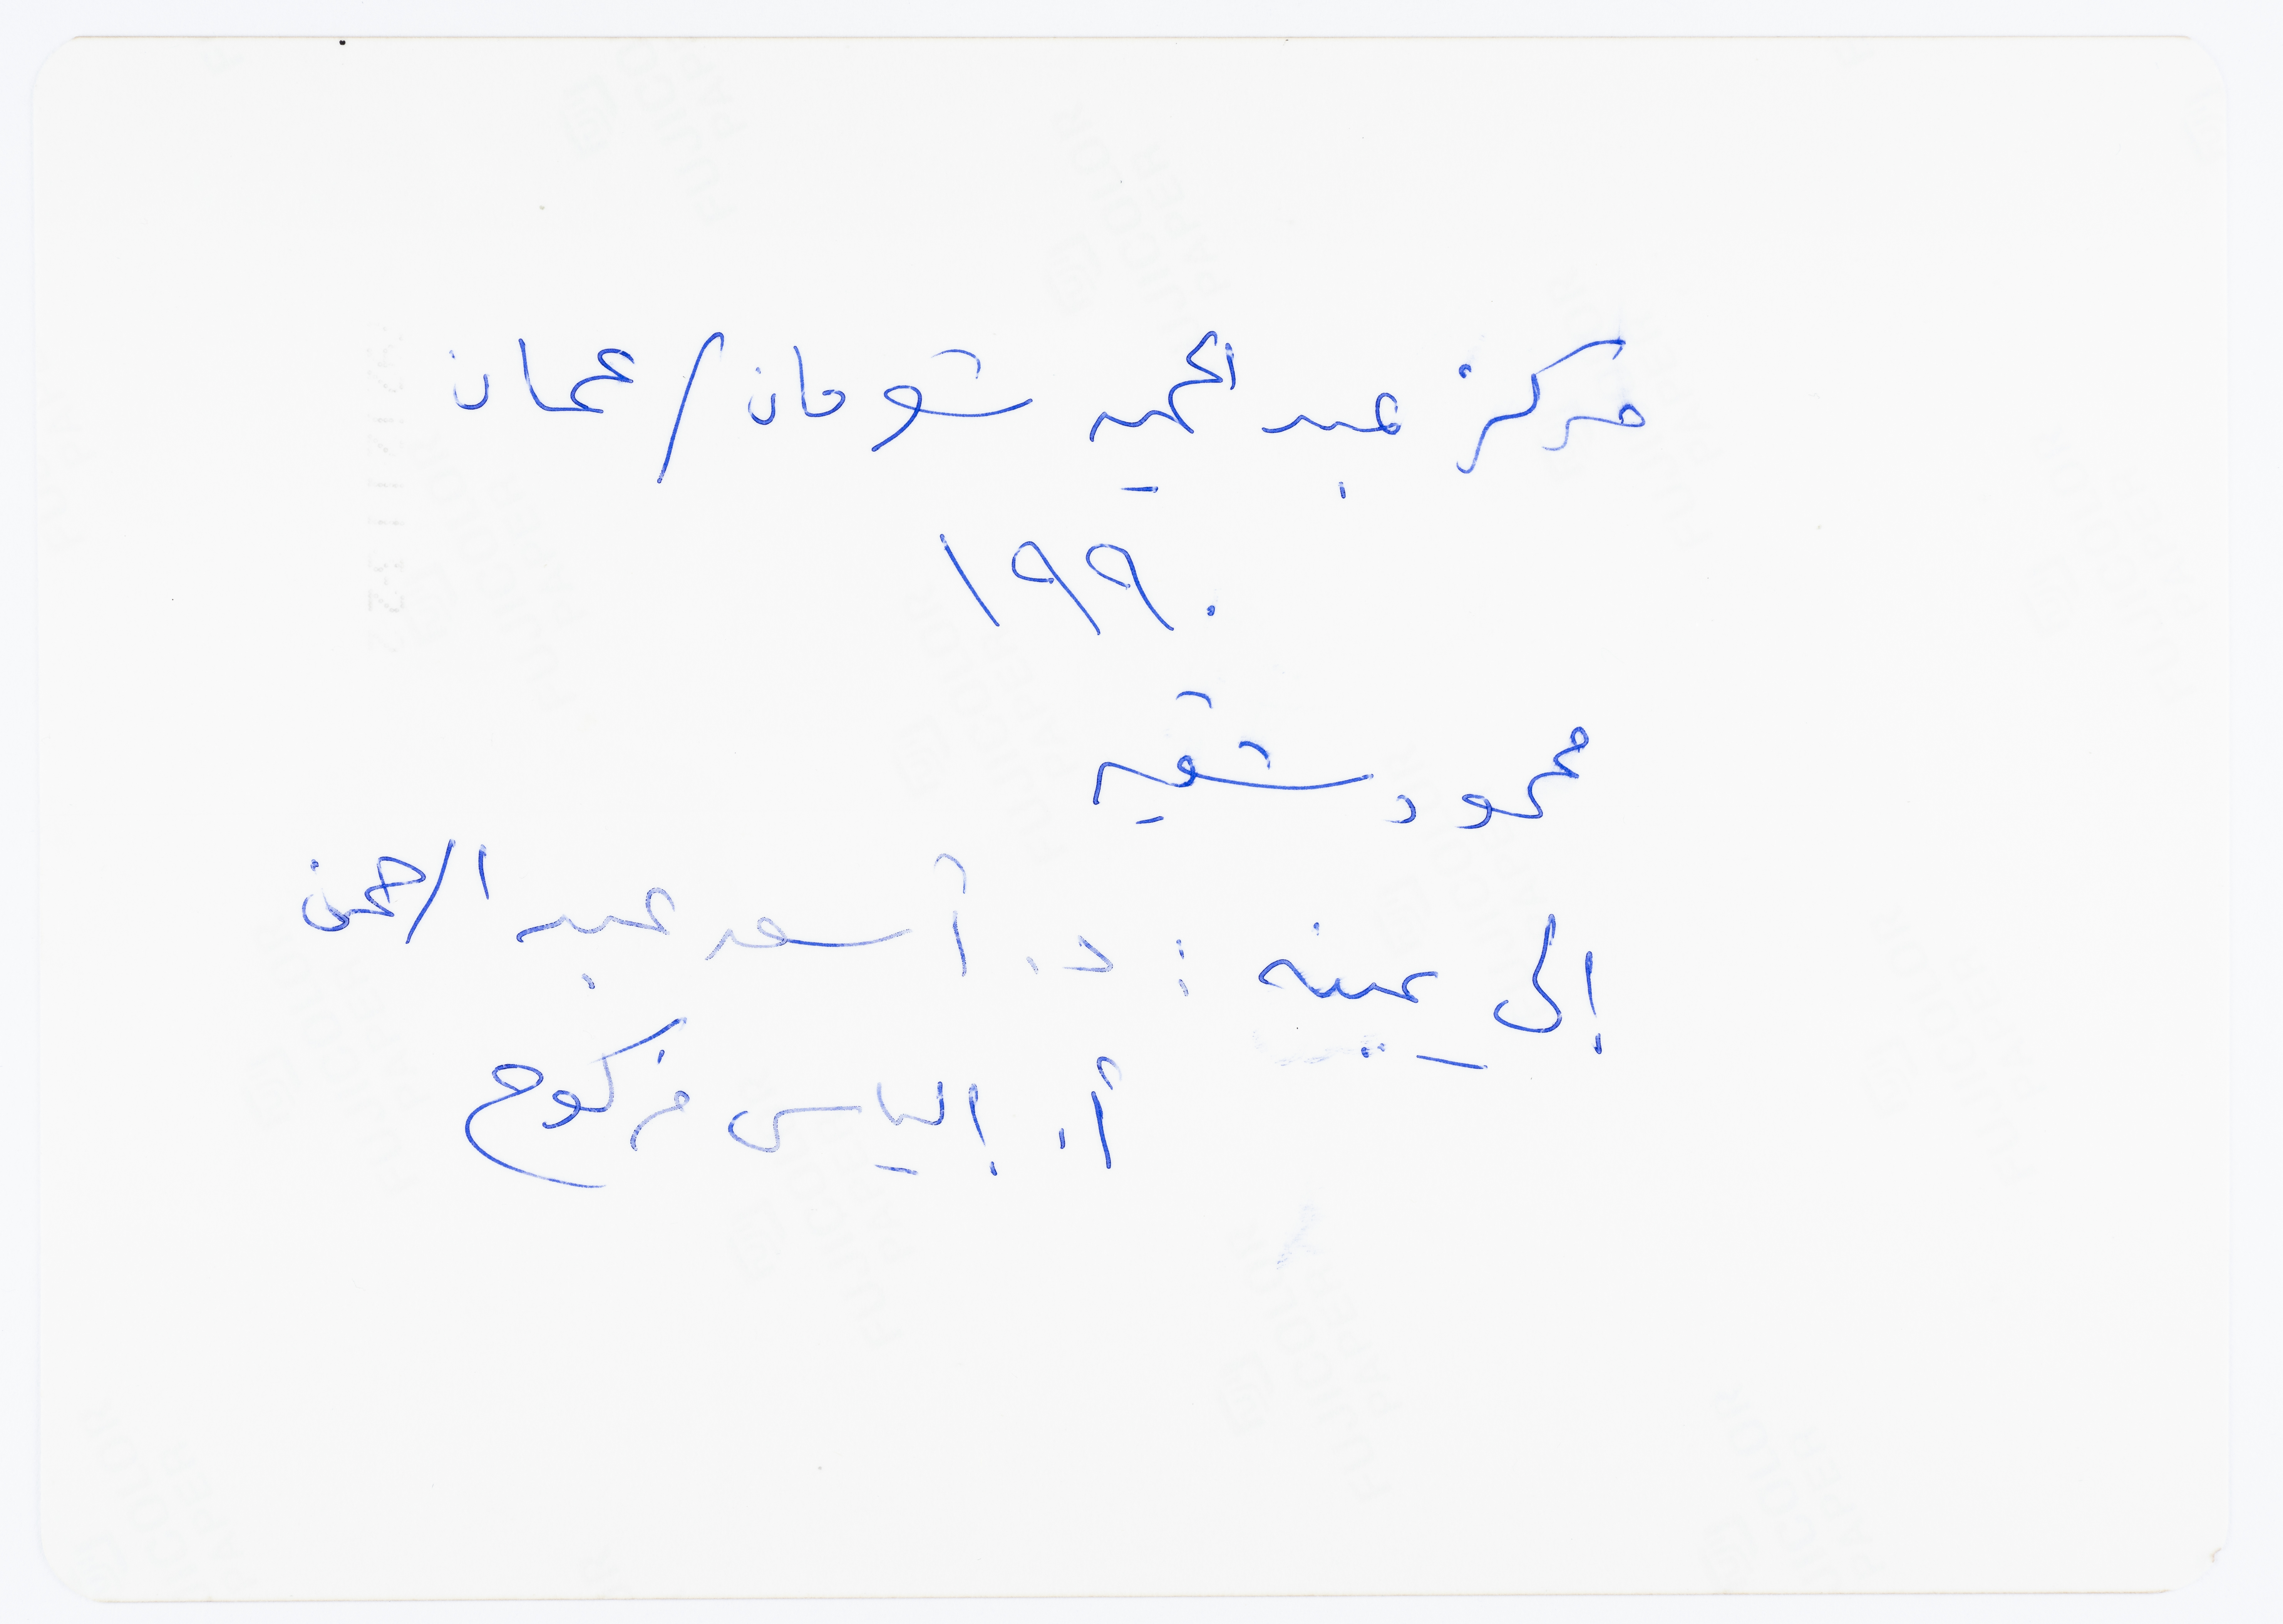 مركز عبد الحميد شومان / عمان
١٩٩٠
محمود شقير
إلى يمينه : د. أسعد عبد الرحمن
أ. إلياس فركوح